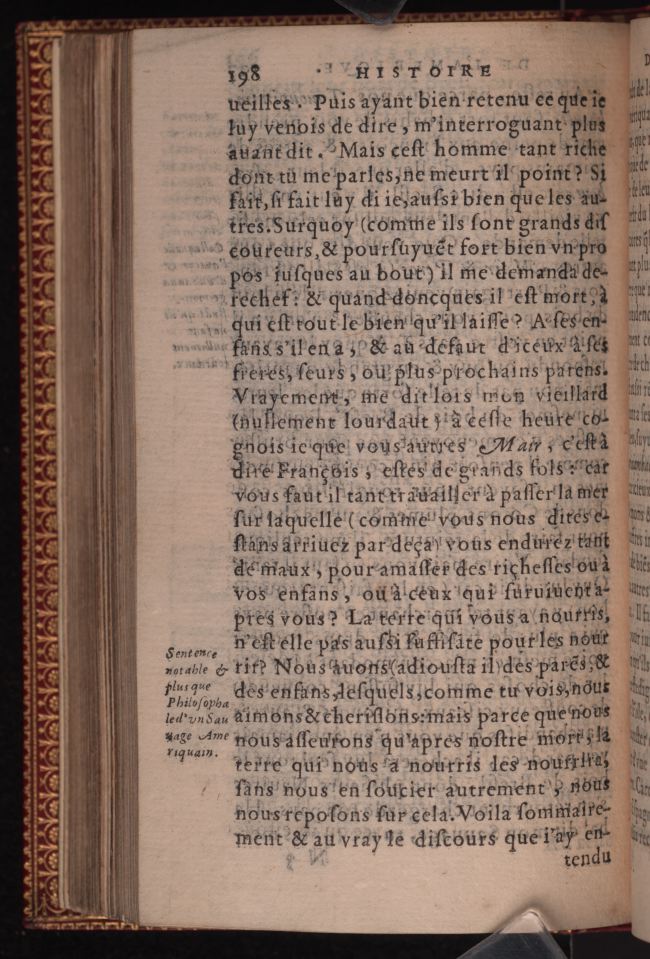 198 HISTOIRE
ueilles. Puis ayant bien retenu ce que ie
luy venois de dire, m'interroguant plus
auant dit. Mais cest homme tant riche
dont tu me parles, ne meurt il point? Si
fait, si fait luy di ie, aussi bien que les au-
tres. Surquoy (comme ils sont grands dis
coureurs, & poursuyuẽt fort bien vn pro
pos iusques au bout) il me demanda de-
rechef: & quand doncques il est mort, à
qui est tout le bien qu'il laisse? A ses en-
fans s'il en a, & au defaut d'iceux à ses
freres, seurs, ou plus prochains parens.
Vrayement, me dit lors mon vieillard
(nullement lourdaut) à ceste heure co-
gnois ie que vous autres Mair, c'est à
dire François, estes de grands fols: car
vous faut il tant trauailler à passer la mer
sur laquelle (comme vous nous dites e-
stans arriuez par deça) vous endurez tant
de maux, pour amasser des richesses ou à
vos enfans, ou à ceux qui suruiuent a-
pres vous? La terre qui vous a nourris,
n'est elle pas aussi suffisãte pour les nour
rir? Nous auons (adiousta il) des parẽs, &
des enfans, lesquels, comme tu vois, nous
aimons & cherissons: mais parce que nous
nous asseurons qu'apres nostre mort, la
terre qui nous a nourris les nourrira,
sans nous en soucier autrement, nous
nous reposons sur cela. Voila sommaire-
ment & au vray le discours que i'ay en-
tendu
Sentence
notable &
plus que
Philosopha
le d'vn Sau
uage Ame
riquain.